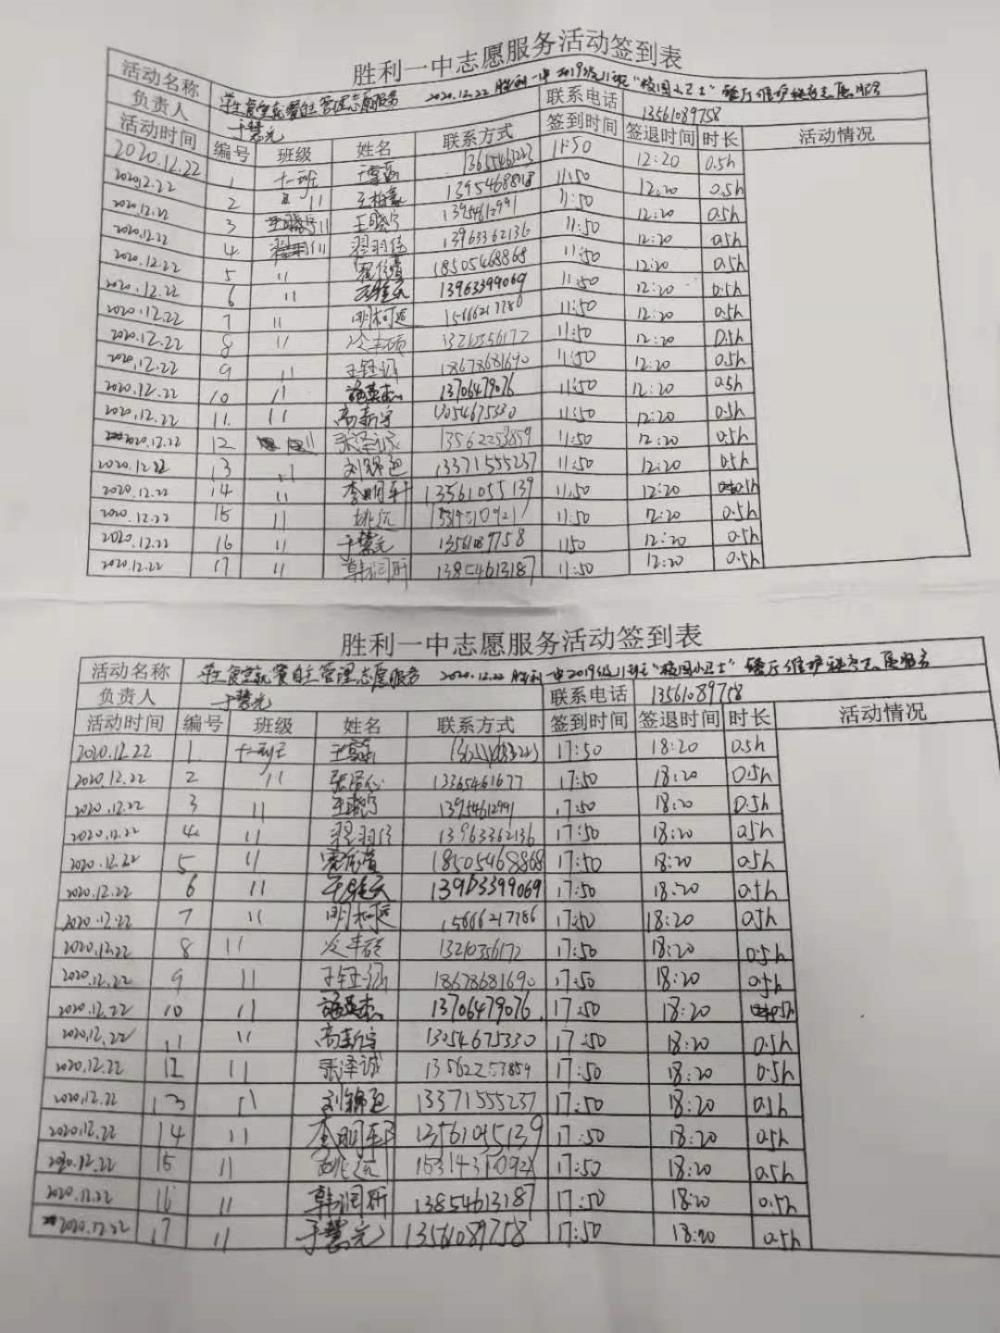 胜利一中志愿服务活动签到表
活动名称 学生食堂就餐自主管理志愿服务 2020.12.22 胜利一中2019级11班"校园小卫士"餐厅维护秩序志愿服务
负责人 于慧元 联系电话 13561089758
活动时间 编号 班级 姓名 联系方式 签到时间 签退时间 时长 活动情况
2020.12.22 1 十一班 11:50 12:20 0.5h
2020.12.22 2 11 13954688118 11:50 12:20 0.5h
2020.12.22 3 11 王晓宁 13954612991 11:50 12:20 0.5h
2020.12.22 4 11 翟羽佳 13963362136 11:50 12:20 0.5h
2020.12.22 5 11 18505468868 11:50 12:20 0.5h
2020.12.22 6 11 13963399069 11:50 12:20 0.5h
2020.12.22 7 11 明柯延 15666217786 11:50 12:20 0.5h
2020.12.22 8 11 11:50 12:20 0.5h
2020.12.22 9 11 王钰涵 18678681690 11:50 12:20 0.5h
2020.12.22 10 11 13706479076 11:50 12:20 0.5h
2020.12.22 11 11 高新宇 13054675330 11:50 12:20 0.5h
2020.12.22 12 11 张泽诚 13562253859 11:50 12:20 0.5h
2020.12.22 13 11 13371555237 11:50 12:20 0.5h
2020.12.22 14 11 李明轩 13561055139 11:50 12:20 0.5h
2020.12.22 15 11 姚远 11:50 12:20 0.5h
2020.12.22 16 11 于慧元 1150 12:20 0.5h
2020.12.22 17 11 韩润昕 13854613187 11:50 12:20 0.5h
胜利一中志愿服务活动签到表
活动名称 学生食堂就餐自主管理志愿服务 2020.12.22 胜利一中2019级11班"校园小卫士"餐厅维护秩序志愿服务
负责人 于慧元 联系电话 13561089758
活动时间 编号 班级 姓名 联系方式 签到时间 签退时间 时长 活动情况
2020.12.22 1 十一班 17:50 18:20 0.5h
2020.12.22 2 11 13365461677 17:50 18:20 0.5h
2020.12.22 3 11 王晓宁 13954612991 17:50 18:20 0.5h
2020.12.22 4 11 翟羽佳 13963362136 17:50 18:20 0.5h
2020.12.22 5 11 18505468868 17:50 18:20 0.5h
2020.12.22 6 11 17:50 18:20 0.5h
2020.12.22 7 11 明柯延 15666217786 17:50 18:20 0.5h
2020.12.22 8 11 13210356172 17:50 18:20 0.5h
2020.12.22 9 11 王钰涵 18678681690 17:50 18:20 0.5h
2020.12.22 10 11 13706479076 17:50 18:20 0.5h
2020.12.22 11 11 高新宇 13054675330 17:50 18:20 0.5h
2020.12.22 12 11 张泽诚 13562253859 17:50 18:20 0.5h
2020.12.22 13 11 13371555237 17:50 18:20 0.5h
2020.12.22 14 11 李明轩 13561055139 17:50 18:20 0.5h
2020.12.22 15 11 姚远 17:50 18:20 0.5h
2020.12.22 16 11 韩润昕 13854613187 17:50 18:20 0.5h
2020.12.22 17 11 于慧元 13561089758 17:50 18:20 0.5h